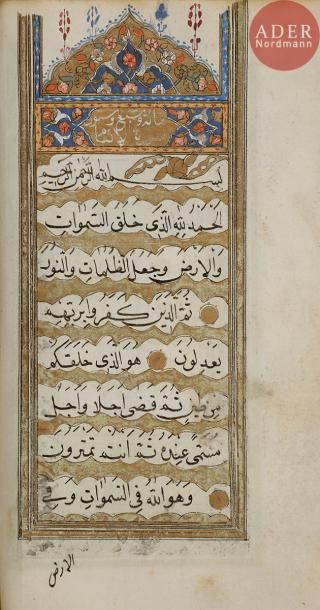 ADER
Nordmann
بسم الله الرحمن الرحيم
الحمد لله الذي خلق السموات
والارض وجعل الظلمات والنور
ثم الذين كفروا بربهم
يعدلون هو الذي خلقكم
من طين ثم قضى اجلا واجل
مسمى عنده ثم انتم تمترون
وهو الله في السموات وفي
الارض